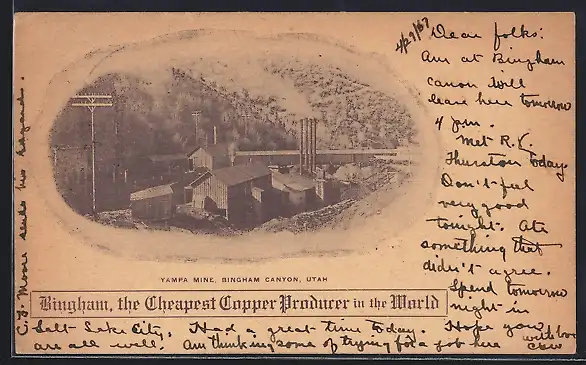 4/27/07
Dear folks:
Am at Bingham
canon will
leave here tomorrow
4 p.m.
Met R.K.
Thurston today
Don't feel
very good
tonight. Ate
something that
didn't agree.
Spend tomorrow
night in
Salt Lake City. Had a great time today. Hope you
are all well. Am thinking some of trying for a job here
with love
CSW
C.J. Moore sends his regards.
YAMPA MINE, BINGHAM CANYON, UTAH
Bingham, the Cheapest Copper Producer in the World